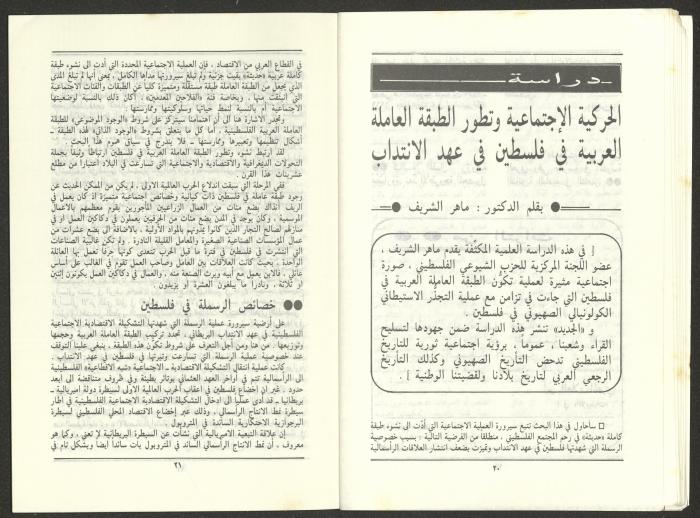 دراسة
الحركية الإجتماعية وتطور الطبقة العاملة
العربية في فلسطين في عهد الانتداب
بقلم الدكتور : ماهر الشريف
[ في هذه الدراسة العلمية المكثفة يقدم ماهر الشريف ،
عضو اللجنة المركزية للحزب الشيوعي الفلسطيني ، صورة
اجتماعية مثيرة لعملية تكون الطبقة العاملة العربية في
فلسطين التي جاءت في تزامن مع عملية التجذر الاستيطاني
الكولونيالي الصهيوني في فلسطين .
و «الجديد» تنشر هذه الدراسة ضمن جهودها لتسليح
القراء وشعبنا ، عموماً ، برؤية اجتماعية ثورية للتاريخ
الفلسطيني تدحض التأريخ الصهيوني وكذلك التأريخ
الرجعي العربي لتاريخ بلادنا ولقضيتنا الوطنية ] .
□ سأحاول في هذا البحث تتبع سيرورة العملية الاجتماعية التي أدت الى نشوء طبقة
كاملة «حديثة» في رحم المجتمع الفلسطيني ، منطلقا من الفرضية التالية : بسبب خصوصية
الرسملة التي شهدتها فلسطين في عهد الانتداب وتميزت بضعف انتشار العلاقات الرأسمالية
٢٠
في القطاع العربي من الاقتصاد ، فإن العملية الاجتماعية المحددة التي أدت الى نشوء طبقة
كاملة عربية «حديثة» بقيت جزئية ولم تبلغ سيرورتها مداها الكامل ، بمعنى أنها لم تبلغ المدى
الذي يجعل من الطبقة العاملة طبقة مستقلة ومتميزة كلياً عن الطبقات والفئات الاجتماعية
التي انبثقت منها ، وبخاصة فئة «الفلاحين المعدمين» ، أكان ذلك بالنسبة لوضعيتها
الاجتماعية أو بالنسبة لنمط حياتها وسلوكيتها وممارستها .
وتجدر الاشارة هنا الى أن اهتمامنا سيتركز على شروط «الوجود الموضوعي» للطبقة
العاملة العربية الفلسطينية ، أما كل ما يتعلق بشروط «الوجود الذاتي» لهذه الطبقة ـ
أشكال تنظيمها وتعبيرها وممارستها ـ فلا يندرج في سياق هموم هذا البحث .
لقد ارتبط نشوء وتطور الطبقة العاملة العربية في فلسطين ارتباطا وثيقا بجملة
التحولات الديمغرافية والاقتصادية والاجتماعية التي تسارعت في البلاد اعتبارا من مطلع
عشرينات هذا القرن .
ففي المرحلة التي سبقت اندلاع الحرب العالمية الاولى ، لم يكن من الممكن الحديث عن
وجود طبقة عاملة في فلسطين ذات كيانية وخصائص اجتماعية متميزة اذ كان يعمل في
الريف آنذاك بضع مئات من العمال الزراعيين المأجورين يقوم معظمهم بالاعمال
الموسمية ، وكان يوجد في المدن بضع مئات من الحرفيين يعملون في دكاكين العمل أو في
منازلهم لصالح التجار الذين كانوا يمدونهم بالمواد الأولية ، بالاضافة الى بضع عشرات من
عمال المؤسسات الصناعية الصغيرة والمعامل القليلة النادرة . ولم تكن غالبية الصناعات
التي انتشرت في فلسطين في فترة ما قبل الحرب تتعدى كونها حرفا تعمل بها العائلة
الواحدة ، بحيث كانت العلاقات بين العامل وصاحب العمل تقوم في الغالب على أساس
عائلي ، فالابن يعمل مع أبيه ويرث الصنعة منه ، والعمال في دكاكين العمل يكونون إثنين
او ثلاثة ، ونادرا ما يبلغون العشرة أو يزيدون .
●● خصائص الرسملة في فلسطين
على أرضية سيرورة عملية الرسملة التي شهدتها التشكيلة الاقتصادية الاجتماعية
الفلسطينية في عهد الانتداب البريطاني ، تحدد تركيب الطبقة العاملة العربية وحجمها
وتوزيعها . من هنا ومن أجل التعرف على شروط تكون هذه الطبقة ، ينبغي علينا التوقف
عند خصوصية عملية الرسملة التي تسارعت وتيرتها في فلسطين في عهد الانتداب .
كانت عملية انتقال التشكيلة الاقتصادية ـ الاجتماعية «شبه الاقطاعية» الفلسطينية
الى الرأسمالية تتم في أواخر العهد العثماني بوتائر بطيئة وفي ظروف متناقضة الى أبعد
حدود . غير أن إخضاع فلسطين في أعقاب الحرب العالمية الأولى لسيطرة دولة امبريالية ـ
بريطانيا ـ قد أدى عمليا الى ادخال التشكيلة الاقتصادية الاجتماعية الفلسطينية في أطار
سيطرة نمط الانتاج الرأسمالي ، وذلك عبر إخضاع الاقتصاد المحلي الفلسطيني لسيطرة
البرجوازية الاحتكارية السائدة في المتروبول .
إن علاقة التبعية الامبريالية التي نشأت عن السيطرة البريطانية لا تعني ، وكما هو
معروف ، أن نمط الانتاج الرأسمالي السائد في المتروبول بات سائدا ايضا وبشكل تام في
٢١